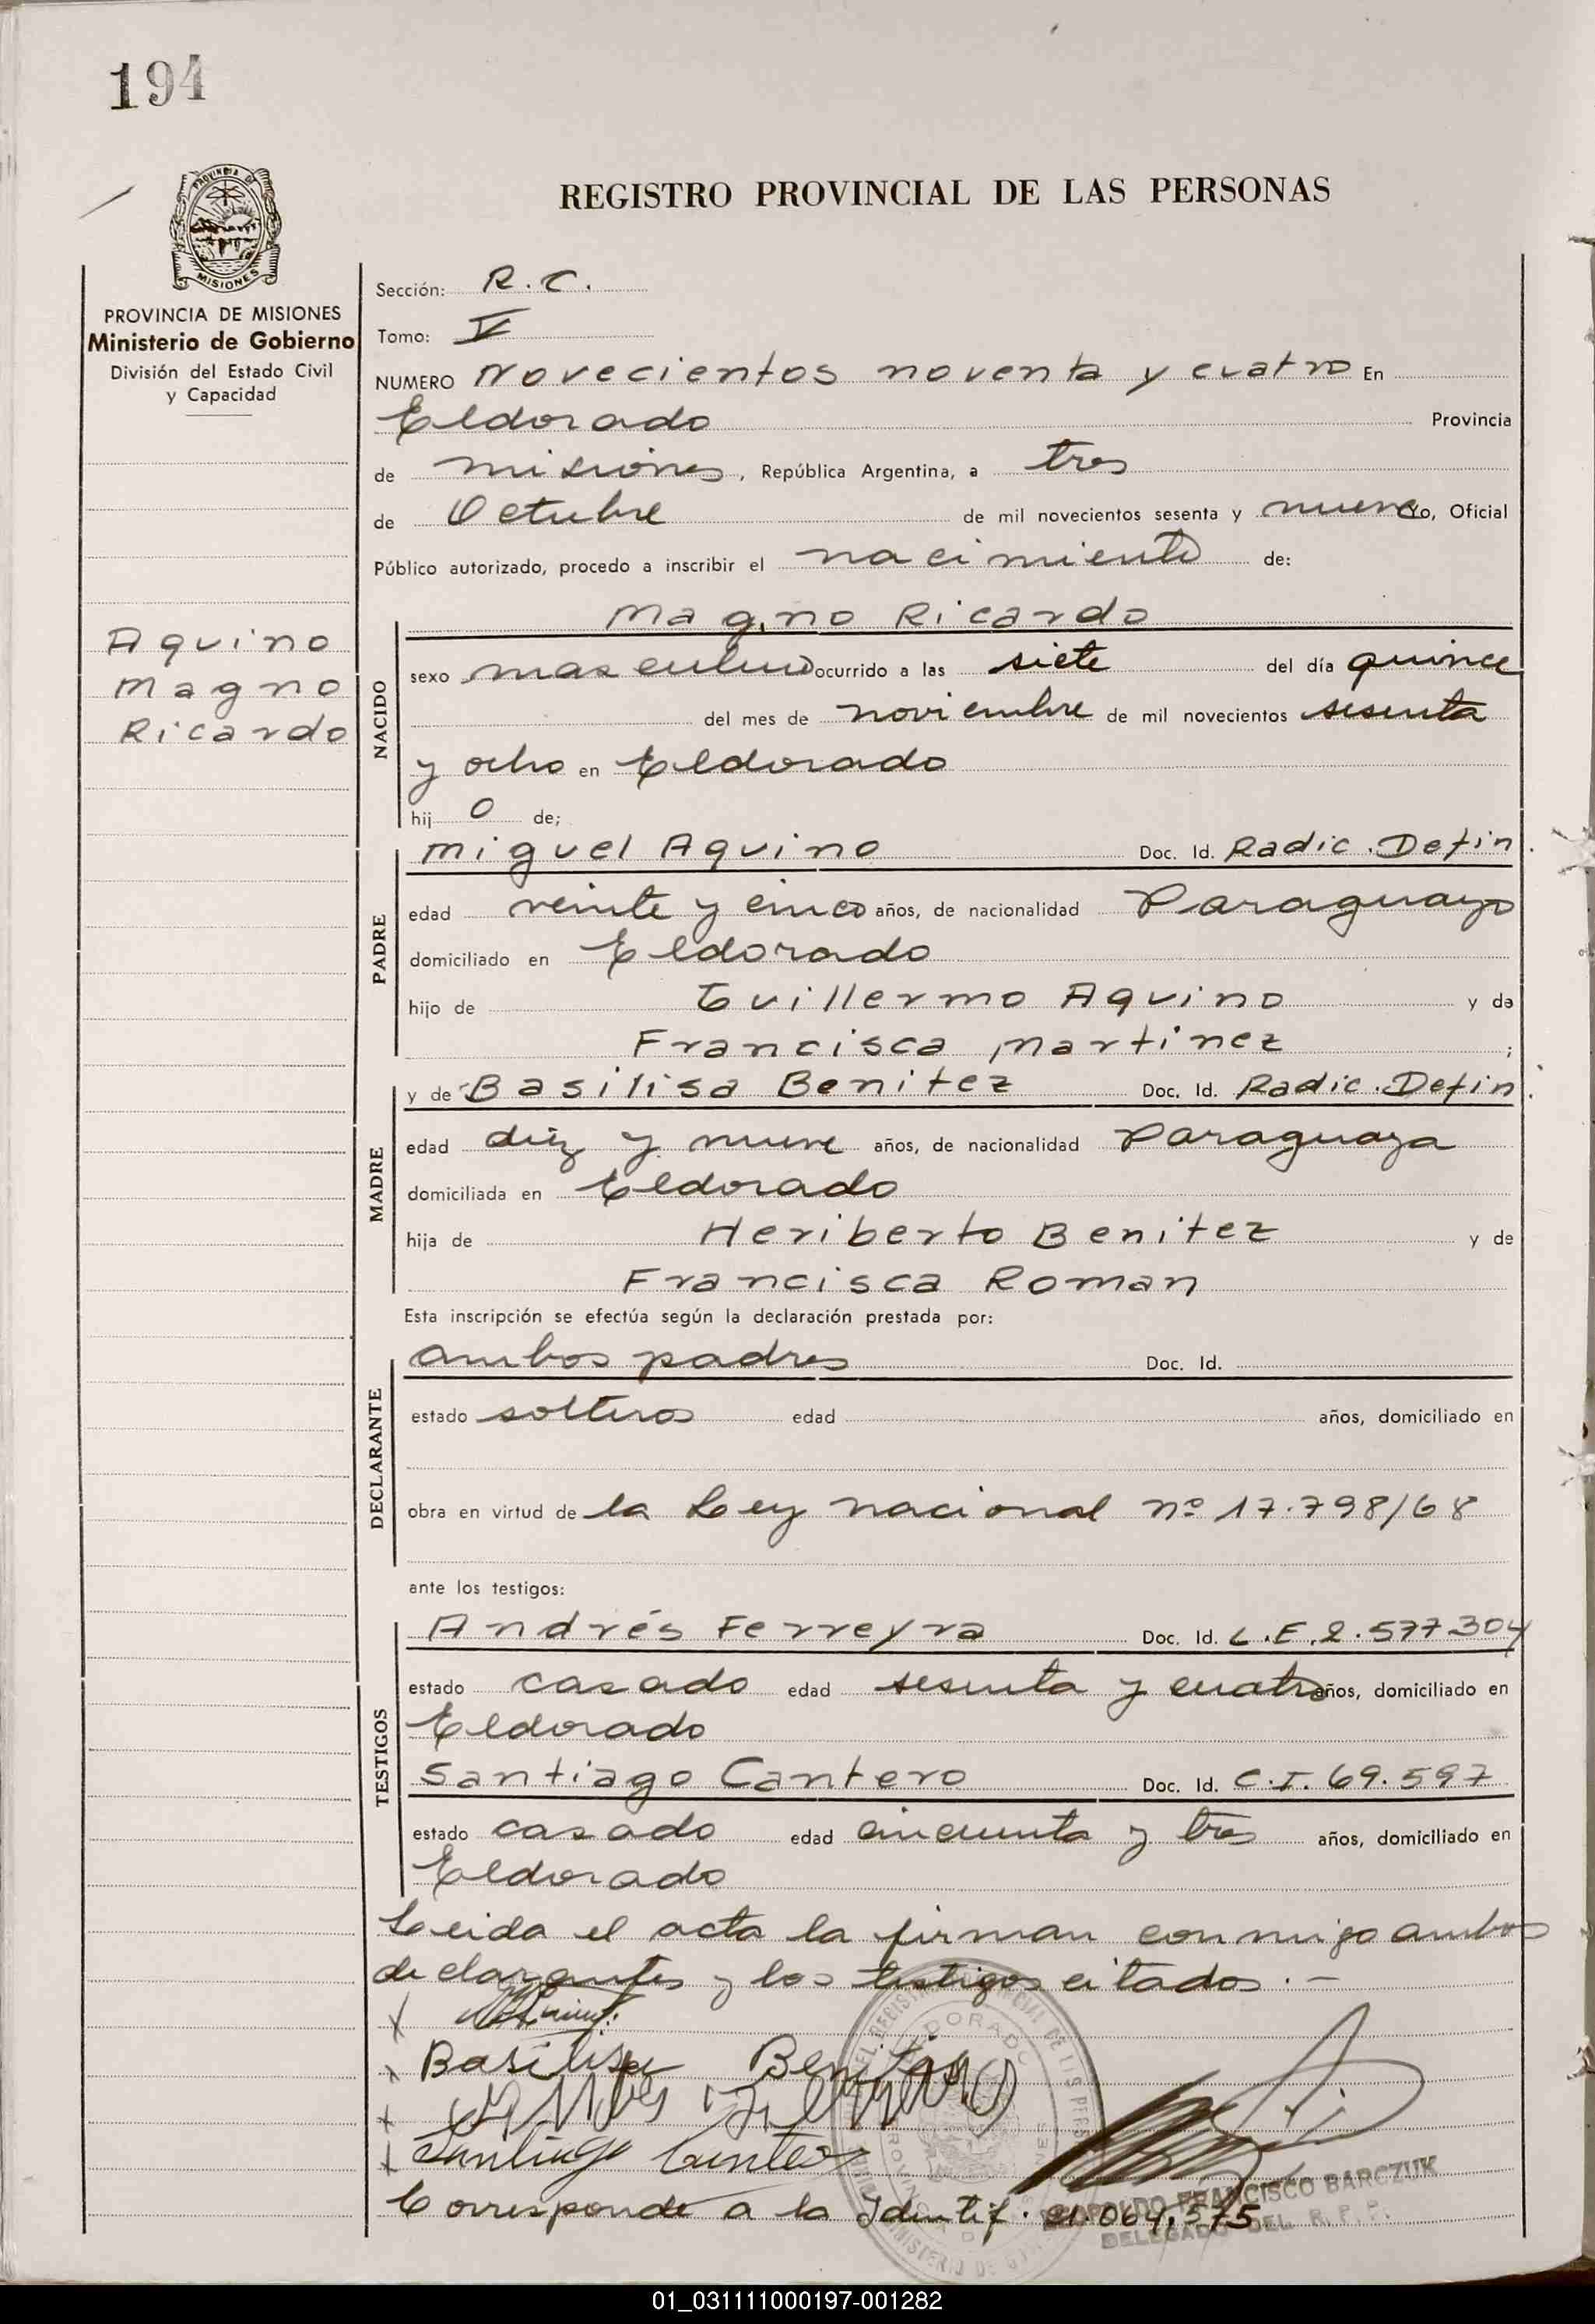 194
PROVINCIA DE MISIONES
REGISTRO PROVINCIAL DE LAS PERSONAS
PROVINCIA DE MISIONES
Ministerio de Gobierno
División del Estado Civil
y Capacidad
Aquino
Magno
Ricardo
Sección: R.C.
Tomo: V
NUMERO Novecientos noventa y cuatro En
Eldorado Provincia
de misiones, República Argentina, a tres
de Octubre de mil novecientos sesenta y nueve Yo, Oficial
Público autorizado, procedo a inscribir el nacimiento de:
NACIDO
Magno Ricardo
sexo masculino ocurrido a las siete del día quince
del mes de noviembre de mil novecientos sesenta
y ocho en Eldorado
hij o de;
PADRE
Miguel Aquino Doc. Id. Radic. Defin.
edad veinte y cinco años, de nacionalidad Paraguayo
domiciliado en Eldorado
hijo de Guillermo Aquino y de
Francisca Martinez ;
MADRE
y de Basilisa Benitez Doc. Id. Radic. Defin.
edad diez y nueve años, de nacionalidad Paraguaya
domiciliada en Eldorado
hija de Heriberto Benitez y de
Francisca Roman
Esta inscripción se efectúa según la declaración prestada por:
DECLARANTE
ambos padres Doc. Id.
estado solteros edad años, domiciliado en
obra en virtud de la Ley nacional nº 17.798/68
ante los testigos:
TESTIGOS
Andrés Ferreyra Doc. Id. L.E. 2.577.304
estado casado edad sesenta y cuatro años, domiciliado en
Eldorado
Santiago Cantero Doc. Id. C.I. 69.597
estado casado edad cincuenta y tres años, domiciliado en
Eldorado
Leida el acta la firman conmigo ambos
declarantes y los testigos citados.-
Basilisa Benitez
Santiago Cantero
LEOPOLDO FRANCISCO BARCZUK
DELEGADO DEL R. P. P.
Corresponde a la Identif. 21.064.575
01_031111000197-001282